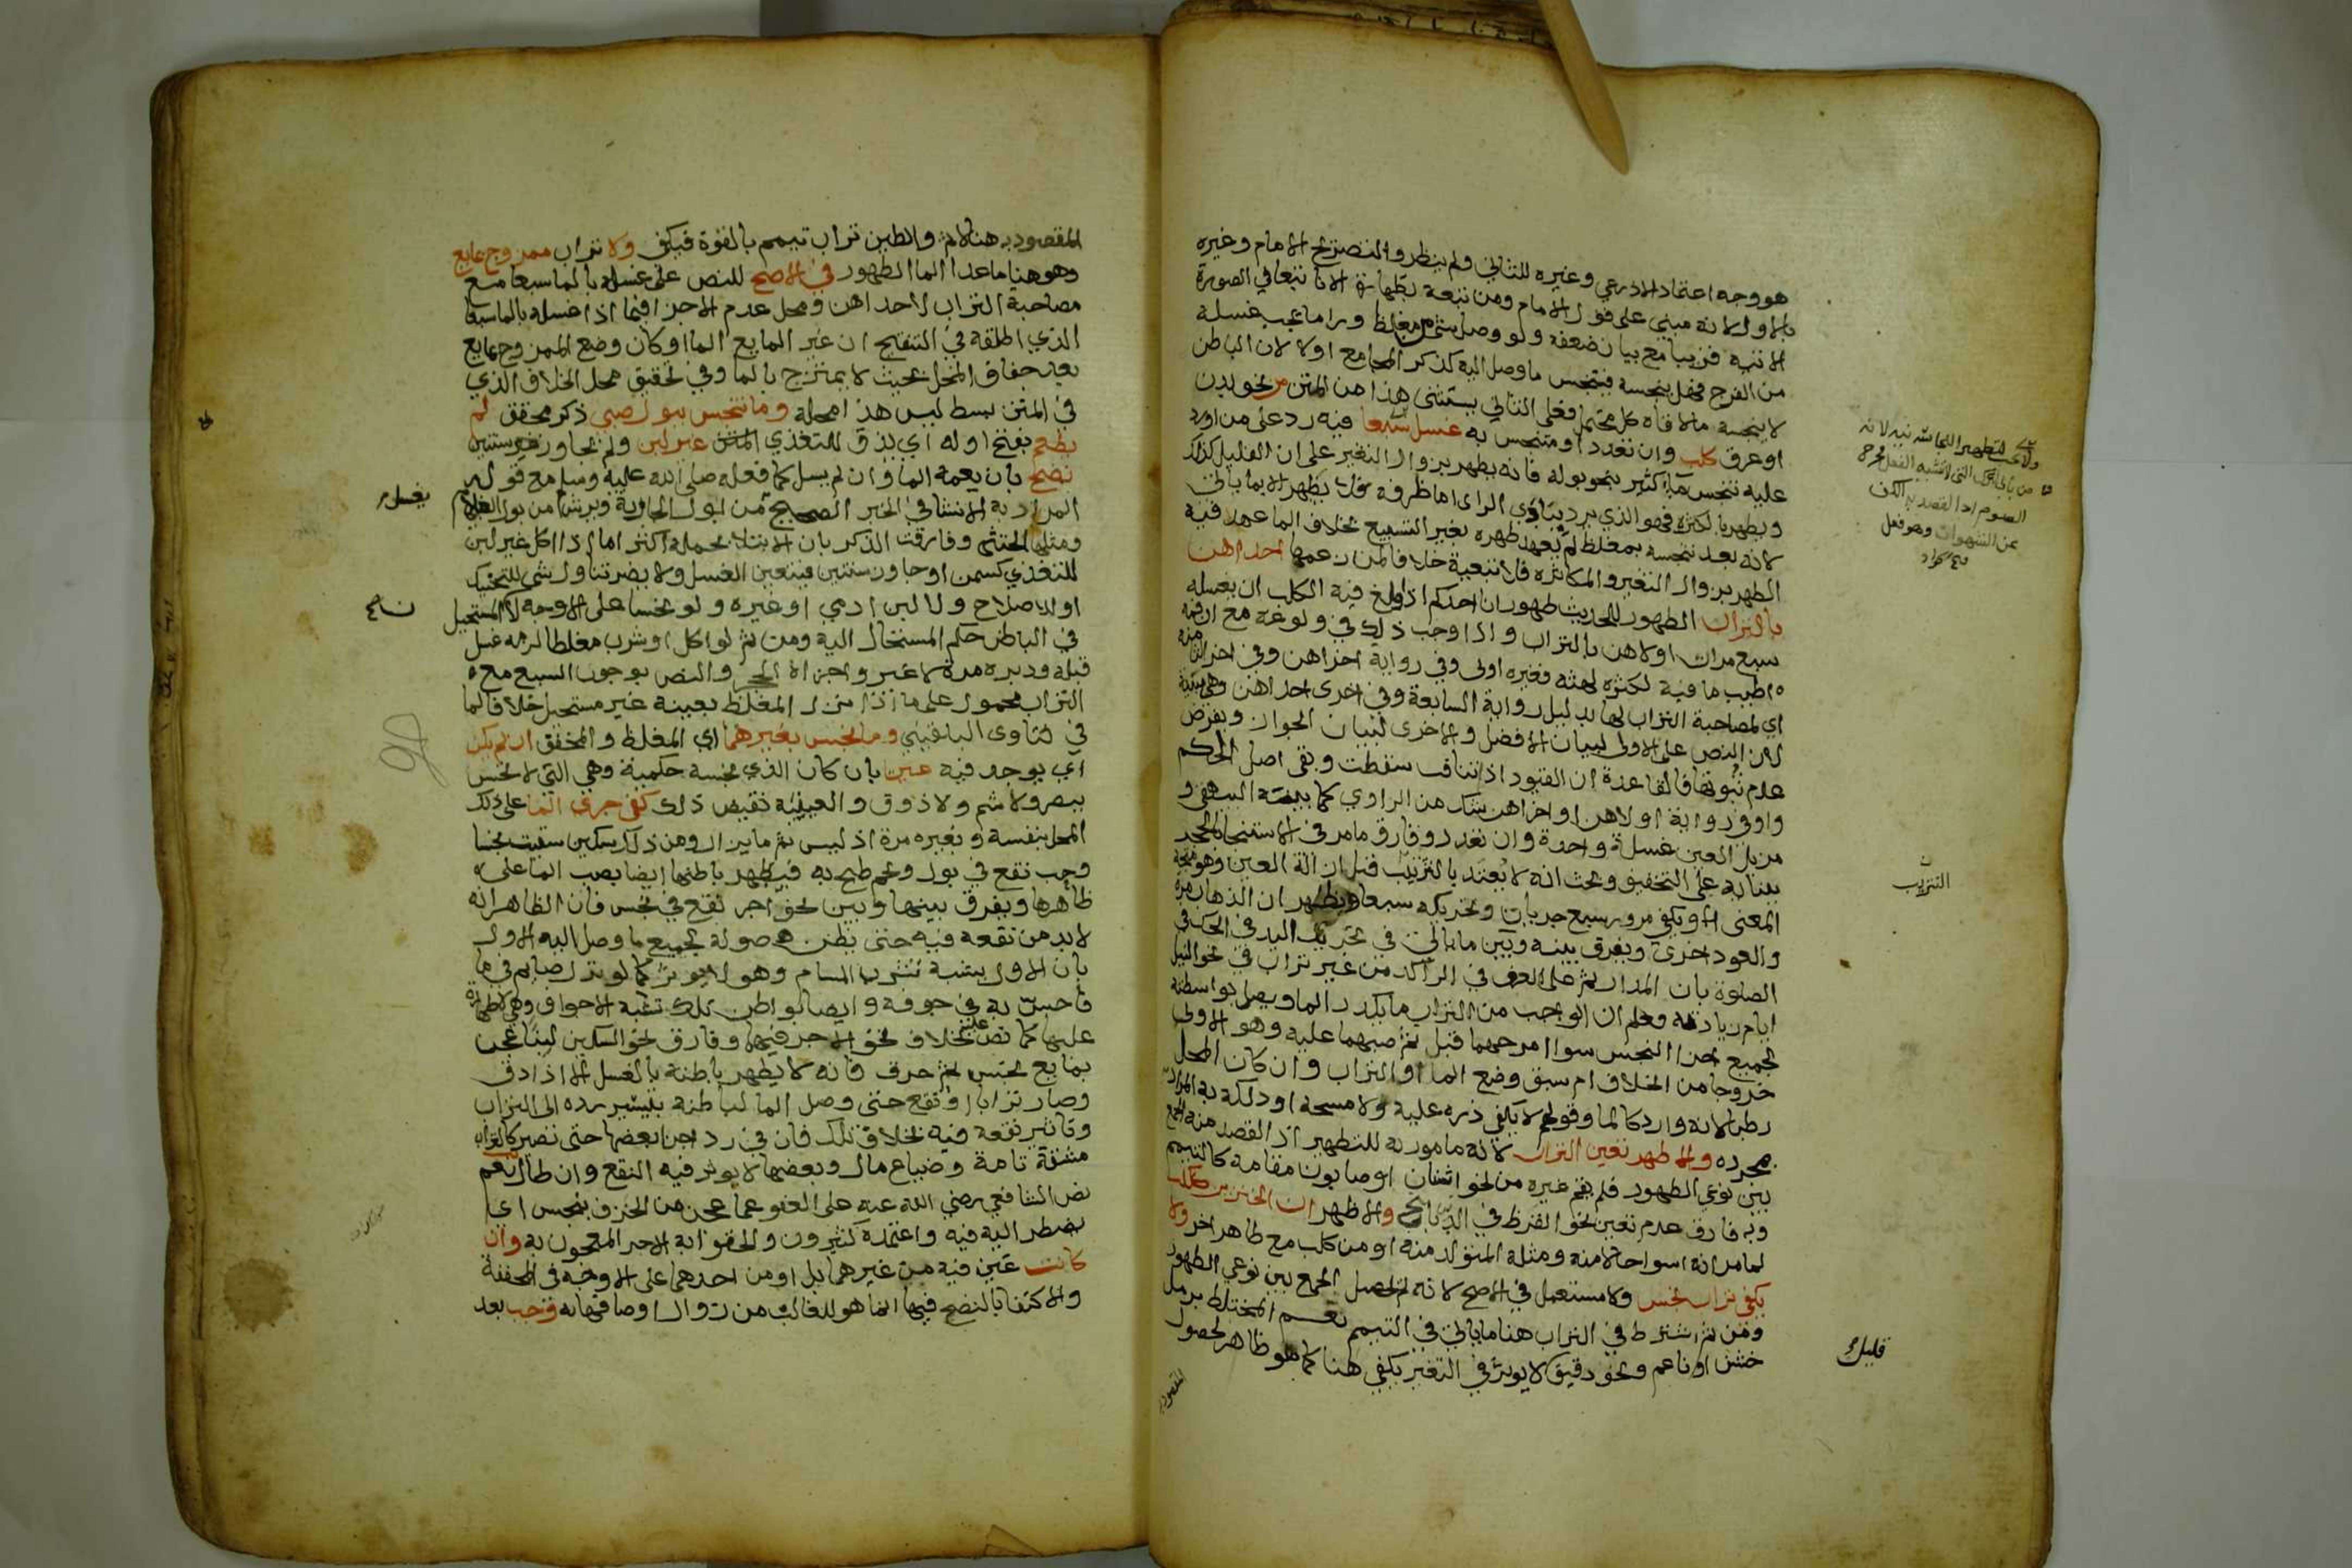 هو وجه اعتماد الاذرعي وغيره للثاني ولم ينظروا لتصريح الامام وغيره
بالاول لانه مبني على قول الامام ومن تبعه بطهارة الاناء تبعا في الصورة
الاتية قريبا مع بيان ضعفه ولو وصل شي من مغلظ وراء ما يجب غسله
من الفرج فهل ينجسه فيتنجس ما وصل اليه كذكر المجامع اولا لان الباطن
لا ينجسه ما لاقاه كل محتمل فعلى الثاني يستثنى هذا من المتن من نحو بدن
او عرق كلب وان تعدد او متنجس به غسل سبعا فيه رد على من اورد
عليه تنجس ماء كثير بنحو بوله فانه يطهر بزوال التغير على ان القليل كذلك
ويطهر بالكثرة فهو الذي يرد ببادي الراي اما ظرفه فلا يطهر الا بما ياتي
لانه بعد تنجسه بمغلظ لم يعهد طهره بغير التسبيع بخلاف الما عهد فيه
الطهر بزوال التغير والمكاثرة فلا تبعية خلافا لمن زعمها احداهن
بالتراب الطهور للحديث طهور اناء احدكم اذا ولغ فيه الكلب ان يغسله
سبع مرات اولاهن بالتراب واذا وجب ذلك في ولوغه مع ان فمه
اطيب ما فيه لكثرة لهثه فغيره اولى وفي رواية اخراهن وفي اخرى الثامنة
اي لمصاحبة التراب لها بدليل رواية السابعة وفي اخرى احداهن وهي مبينة
لان النص على الاولى لبيان الافضل والاخرى لبيان الجواز وبفرض
عدم ثبوتها فالقاعدة ان القيود اذا تنافت سقطت وبقي اصل الحكم
واو في رواية اولاهن او اخراهن شك من الراوي كما بينه البيهقي و
مزيل العين غسلة واحدة وان تعدد وفارق ما مر في الاستنجاء بالحجر
ببنائه على التخفيف وبحث انه لا يعتد بالتتريب قبل ازالة العين وهو متجه
المعنى الا ويكفي مرور سبع جريات وتحريكه سبعا ويظهر ان الذهاب مرة
والعود اخرى ويفرق بينه وبين ما ياتي في تحريك اليد في الحك في
الصلوة بان المدار ثم على العرف في الراكد من غير تراب في نحو النيل
ايام زيادته وعلم ان الواجب من التراب ما يكدر الما ويصل بواسطته
لجميع اجزا النجس سوا امزجهما قبل ثم صبهما عليه وهو الاولى
خروجا من الخلاف ام سبق وضع الما او التراب وان كان المحل
رطبا لانه وارد كالما وقولهم لا يكفي ذره عليه ولا مسحه او دلكه به المراد
بمجرده والاظهر تعين التراب لانه مامور به للتطهير اذ القصد منه الجمع
بين نوعي الطهور فلم يقم غيره من نحو اشنان او صابون مقامه كالتيمم
وبه فارق عدم تعين نحو القرظ في الدباغ والاظهر ان الخنزير ككلب
لما مر انه اسوا حالا منه ومثله المتولد منه او من كلب مع طاهر اخر ولا
يكفي تراب نجس ولا مستعمل في الاصح لانه لم يحصل الجمع بين نوعي الطهور
ومن ثم اشترط في التراب هنا ما ياتي في التيمم نعم المختلط برمل
خشن او ناعم ونحو دقيق لا يوثر في التغير يكفي هنا كما هو ظاهر لحصول
المقصود به
التتريب
قليل
المقصود به هنا لا ثم والطين تراب تيمم بالقوة فيكفي ولا تراب ممزوج بمايع
وهو هنا ما عدا الما الطهور في الاصح للنص على غسله بالما سبعا مع
مصاحبة التراب لاحداهن ومحل عدم الاجزا فيما اذا غسله بالما سبعا
الذي اطلقه في التنقيح ان غير المايع الما او كان وضع الممزوج بمايع
بعد جفاف المحل بحيث لا يمتزج بالما وفي تحقيق محل الخلاف الذي
في المتن بسط ليس هذا محله وما تنجس ببول صبي ذكر محقق لم
يطعم بفتح اوله اي يذق للتغذي غير لبن ولم يجاوز سنتين
نضح بان يعمه الما وان لم يسل كما فعله صلى الله عليه وسلم مع قوله
المراد به الانشا في الخبر الصحيح من بول الجارية ويرش من بول الغلام
ومثلها الخنثى وفارقت الذكر بان الابتلا بحمله اكثر اما اذا اكل غير لبن
للتغذي كسمن او جاوز سنتين فيتعين الغسل ولا يضر تناول شي للتحنيك
او للاصلاح ولا لبن ادمي او غيره ولو نجسا على الاوجه لان المستحيل
في الباطن حكم المستحال اليه ومن ثم لو اكل او شرب مغلظا لزمه غسل
قبله ودبره مرة لا غير واجزاه الحجر والنص بوجوب السبع مع
التراب محمول على ما اذا نزل المغلظ بعينه غير مستحيل خلافا لما
في فتاوى البلقيني وما نجس بغيرهما اي المغلظ والمخفف ان لم يكن
اي يوجد فيه عين بان كان الذي نجسه حكمية وهي التي لا تحس
ببصر ولا شم ولا ذوق والعينية نقيض ذلك كفى جري الما على ذلك
المحل بنفسه وبغيره مرة اذ ليس ثم ما يزال ومن ذلك سكين سقيت نجسا
وحب نقع في بول ولحم طبخ به فيطهر باطنها ايضا بصب الما على
ظاهرها ويفرق بينها وبين نحو اجر نقع في نجس فان الظاهر انه
لا بد من نقعه فيه حتى يظن وصوله لجميع ما وصل اليه الاول
بان الاول يشبه تشرب المسام وهو لا يوثر كما لو نزل صايم في ما
فاحس به في جوفه وايضا بواطن تلك تشبه الاجواف وهي لا طهارة
عليها كما نص عليه بخلاف نحو الاجر فيهما وفارق نحو السكين لبنا عجن
بمايع نجس ثم حرق فانه لا يطهر باطنه بالغسل الا اذا دق
وصار ترابا او نقع حتى وصل الما لباطنه بتيسر رده الى التراب
وتاثير نقعه فيه بخلاف تلك فان في رد اجزا بعضها حتى تصير كالتراب
مشقة تامة وضياع مال وبعضها لا يوثر فيه النقع وان طال نعم
نص الشافعي رضي الله عنه على العفو عما عجن من الخزف بنجس اي
يضطر اليه فيه واعتمده كثيرون والحقوا به الاجر المعجون به وان
كانت عين فيه من غيرهما بل او من احدهما على الاوجه في المخففة
والاكتفا بالنضح فيها انما هو للغالب من زوال اوصافها به وجب بعد
يغسل